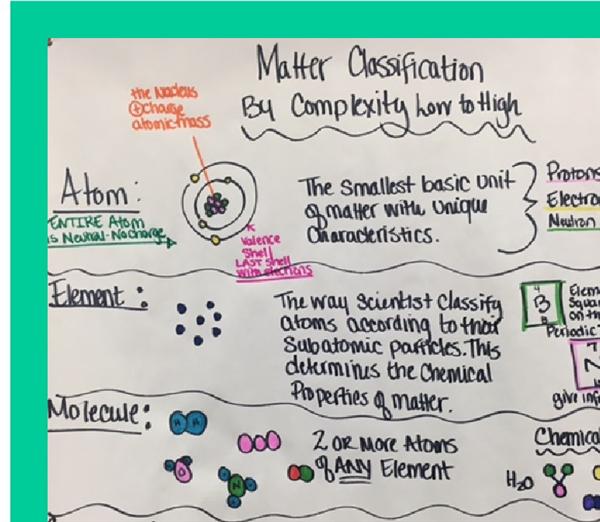 Matter Classification
By Complexity Low to High
the Nucleus
⊕charge
atomic mass
Atom:
ENTIRE Atom
is Neutral-No charge
Valence
Shell
LAST Shell
with electrons
The Smallest basic Unit
of matter with Unique
Characteristics.
Protons
Electro
Neutron
Element:
The way Scientist Classify
atoms according to their
Subatomic particles. This
determines the Chemical
Properties of matter.
4
B
B
Elem
Squar
on th
Periodic T
7
N
give inf
Molecule:
H H
2 OR More Atoms
of ANY Element
O
N
Chemical
H2O